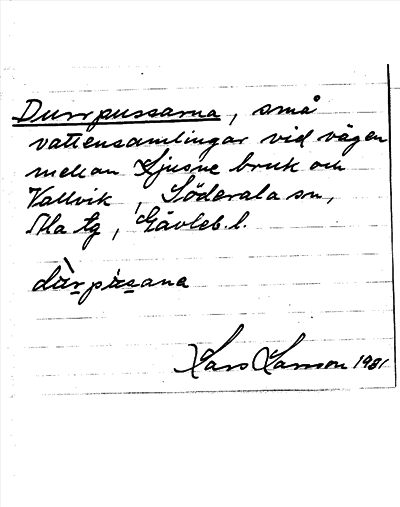 Durrpussarna, små
vattensamlingar vid vägen
mellan Ljusne bruk och
Vallvik, Söderala sn,
Ala tg, Gävleb. l.
dùrpusana
Lars Larsson 1981